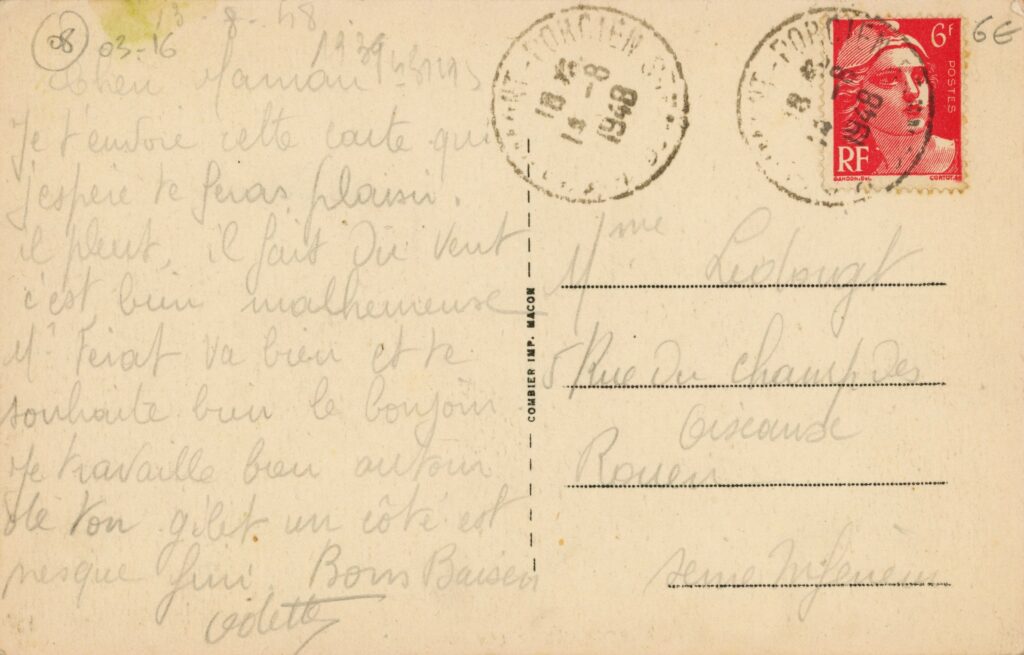 08
03-16
13-8-48
Cher Maman
Je t'envoie cette carte qui
j'espère te feras plaisir.
il pleut, il fait du vent
c'est bien malheureuse
Mr Ferat va bien et te
souhaite bien le bonjour
Je travaille bien autour
de ton gilet un côté est
presque fini. Bons Baisers
Odette
COMBIER IMP. MACON
18 H
13-8
1948
18 H
13-8
1948
6F
POSTES
RF
GANDON-DEL
CORTOT-SC
6€
Mme
5 Rue du Champ des
Oiseaux
Rouen
Seine Inférieure